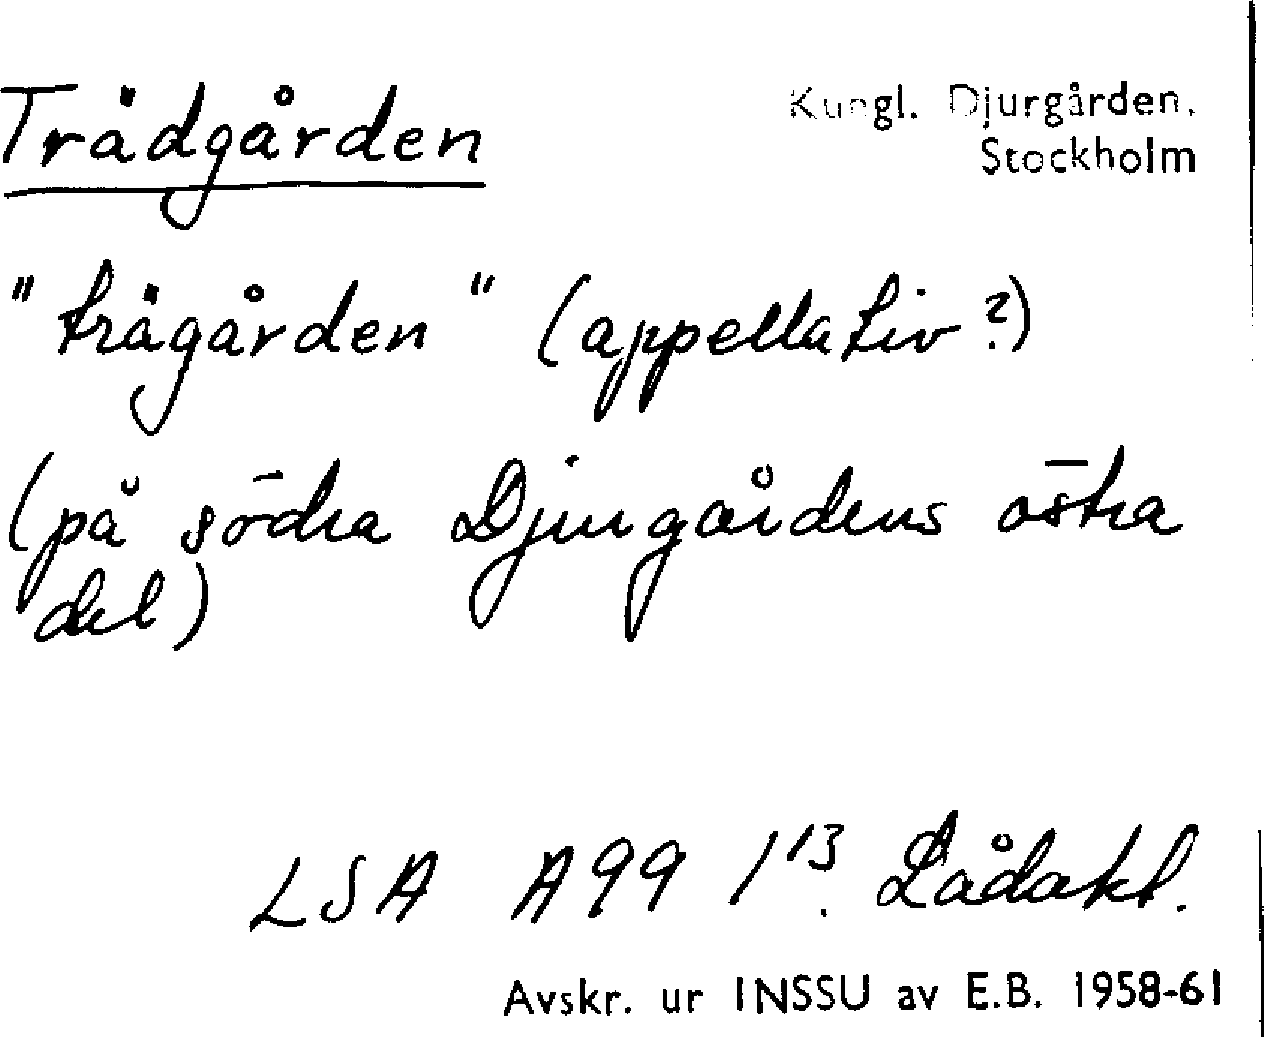 Trädgården
Kungl. Djurgården,
Stockholm
"trägården" (appellativ?)
(på södra Djurgårdens östra
del)
LSA A99 1:13 Lådakt.
Avskr. ur INSSU av E.B. 1958-61